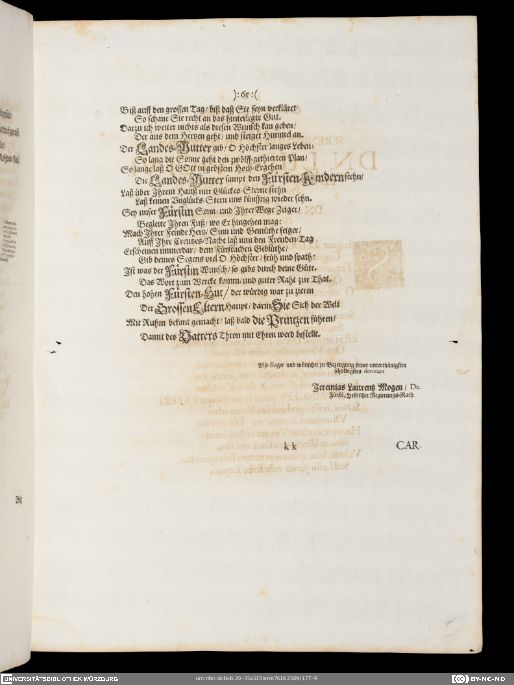 ):65:(
Biß auff den grossen Tag/ biß daß Sie seyn verkläret/
So schaue Sie recht an das hinterlegte Gut.
Darzu ich weiter nichts als diesen Wunsch kan geben/
Der aus dem Hertzen geht/ und steiget Himmel an.
Der Landes-Mutter gib/ O Höchster langes Leben;
So lang die Sonne geht den zwölff-gethierten Plan/
So lange laß O GOtt in grössem Hoch-Ergehen
Die Landes-Mutter sampt den Fürsten-Kindern stehn/
Laß über Ihrem Hauß nur Glückes-Sterne stehn
Laß keinen Unglücks-Stern uns künfftig wieder sehn.
Sey unser Fürstin Sonn/ und Ihrer Wege Zeiger/
Begleite Ihren Fuß/ wo Er hingehen mag:
Mach Ihrer Feinde Hertz/ Sinn und Gemüthe feiger/
Auff Ihre Creutzes-Nacht laß nun den Freuden-Tag
Erscheinen immerdar/ dem Fürstlichen Geblüthe/
Gib deines Segens viel O Höchster/ früh und spath:
Ist was der Fürstin Wunsch/ so gibs durch deine Güte.
Das Wort zum Wercke komm/ und guter Raht zur That.
Den hohen Fürsten-Hut/ der würdig war zu zieren
Der Grossen Eltern Haupt/ darin Sie Sich der Welt
Mit Ruhm bekant gemacht/ laß bald die Printzen führen/
Damit des Vatters Thron mit Ehren werd bestellt.
Also klaget und wünschet zu Bezeugung seiner unterthänigsten
schuldigsten devotion
Jeremias Laurentz Mogen/ Dr.
Fürstl. Hessischer Regierungs-Rath.
kk
CAR.
UNIVERSITÄTSBIBLIOTHEK WÜRZBURG
CC BY-NC-ND